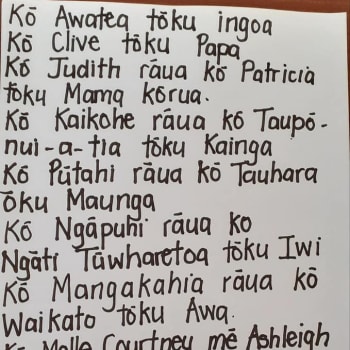 Kō Awatea tōku ingoa
Kō Clive tōku Papa
Kō Judith rāua kō Patricia
tōku Mama kōrua.
Kō Kaikohe rāua kō Taupō-
nui-a-tia tōku Kainga
Kō Pūtahi rāua kō Tauhara
ōku Maunga
Kō Ngāpuhi rāua ko
Ngāti Tāwharetoa tōku Iwi
Kō Mangakahia rāua kō
Waikato tōku Awa.
Kō Molle Courtney mē Ashleigh